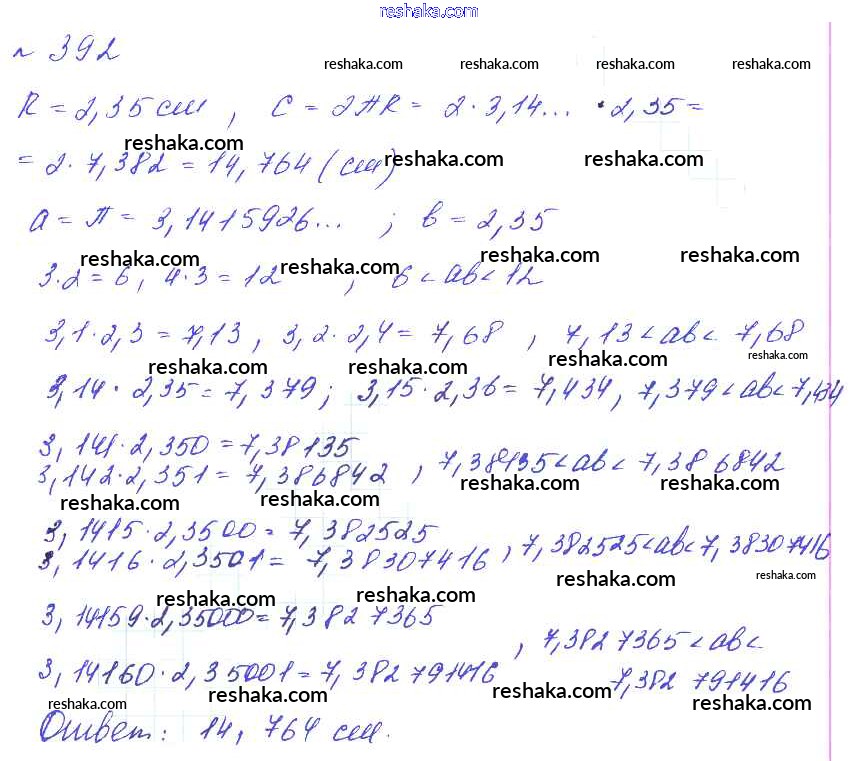 reshaka.com
№ 392
reshaka.com reshaka.com reshaka.com reshaka.com
R = 2,35 см , C = 2πR = 2 · 3,14... · 2,35 =
reshaka.com reshaka.com reshaka.com
= 2 · 7,382 = 14,764 (см)
a = π = 3,1415926... ; b = 2,35
reshaka.com reshaka.com reshaka.com reshaka.com
3·2 = 6, 4·3 = 12 , 6 < ab < 12
3,1 · 2,3 = 7,13 , 3,2 · 2,4 = 7,68 , 7,13 < ab < 7,68
reshaka.com reshaka.com reshaka.com reshaka.com
3,14 · 2,35 = 7,379; 3,15 · 2,36 = 7,434, 7,379 < ab < 7,434
3,141 · 2,350 = 7,38135
3,142 · 2,351 = 7,386842 , 7,38135 < ab < 7,386842
reshaka.com reshaka.com reshaka.com reshaka.com
3,1415 · 2,3500 = 7,382525
3,1416 · 2,3501 = 7,38307416 , 7,382525 < ab < 7,38307416
reshaka.com reshaka.com reshaka.com reshaka.com
3,14159 · 2,35000 = 7,3827365
3,14160 · 2,35001 = 7,382791416 , 7,3827365 < ab <
7,382791416
reshaka.com reshaka.com reshaka.com reshaka.com
Ответ: 14,764 см.